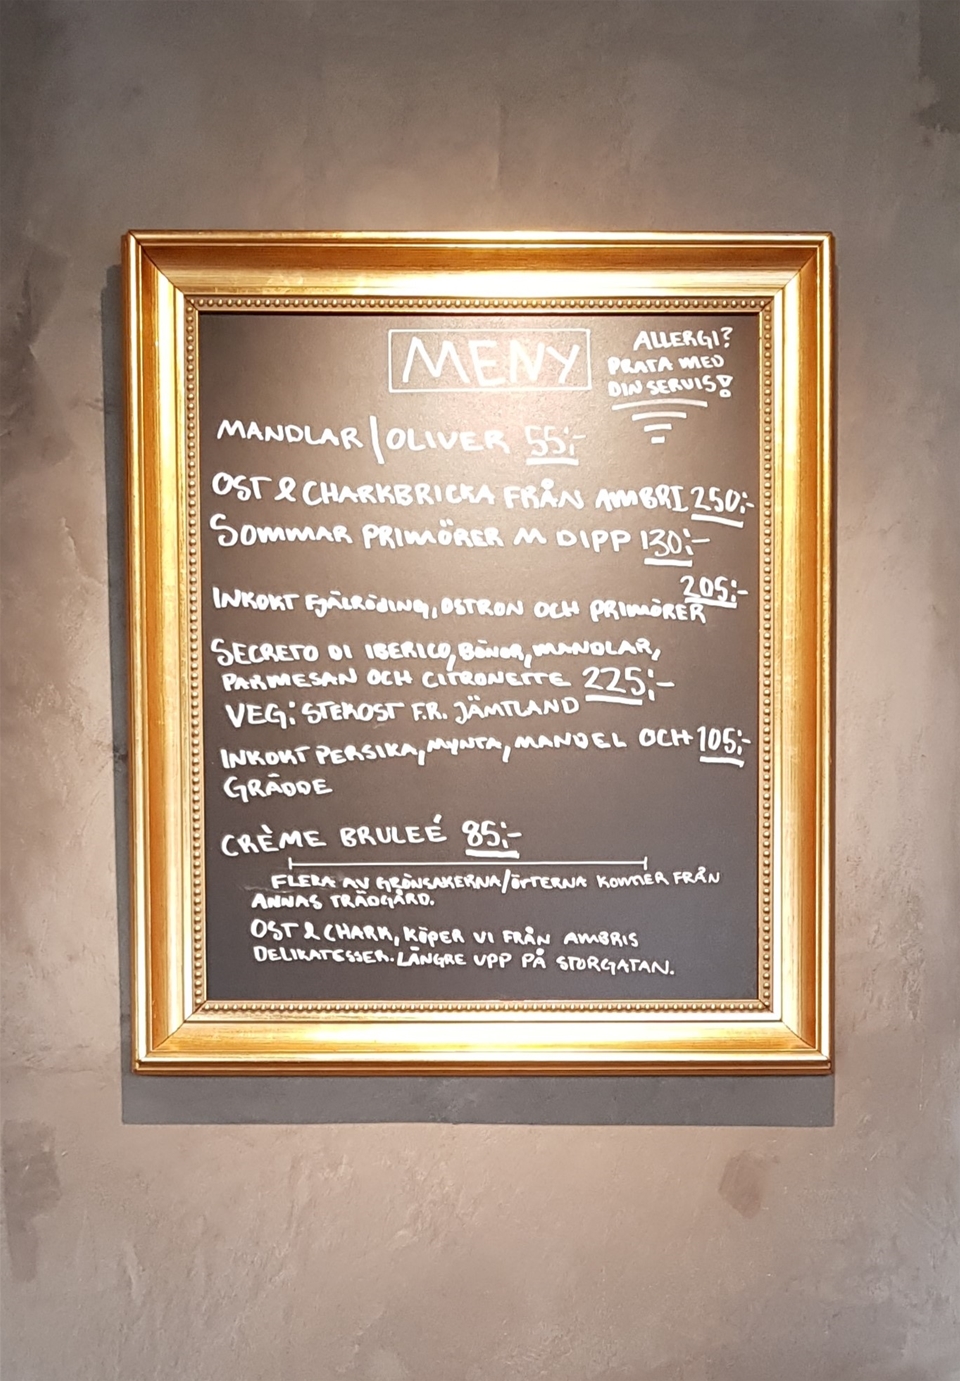 MENY
ALLERGI?
PRATA MED
DIN SERVIS!
MANDLAR/OLIVER 55:-
OST & CHARKBRICKA FRÅN AMBRI 250:-
SOMMAR PRIMÖRER M DIPP 130:-
205:-
INKOKT FJÄLRÖDING, OSTRON OCH PRIMÖRER
SECRETO DI IBERICO, BÖNOR, MANDLAR,
PARMESAN OCH CITRONETTE 225:-
VEG: STEKOST F.R. JÄMTLAND
INKOKT PERSIKA, MYNTA, MANDEL OCH 105:-
GRÄDDE
CRÈME BRULEÉ 85:-
FLERA AV GRÖNSAKERNA/ÖRTERNA KOMMER FRÅN
ANNAS TRÄDGÅRD.
OST & CHARK, KÖPER VI FRÅN AMBRIS
DELIKATESSER. LÄNGRE UPP PÅ STORGATAN.